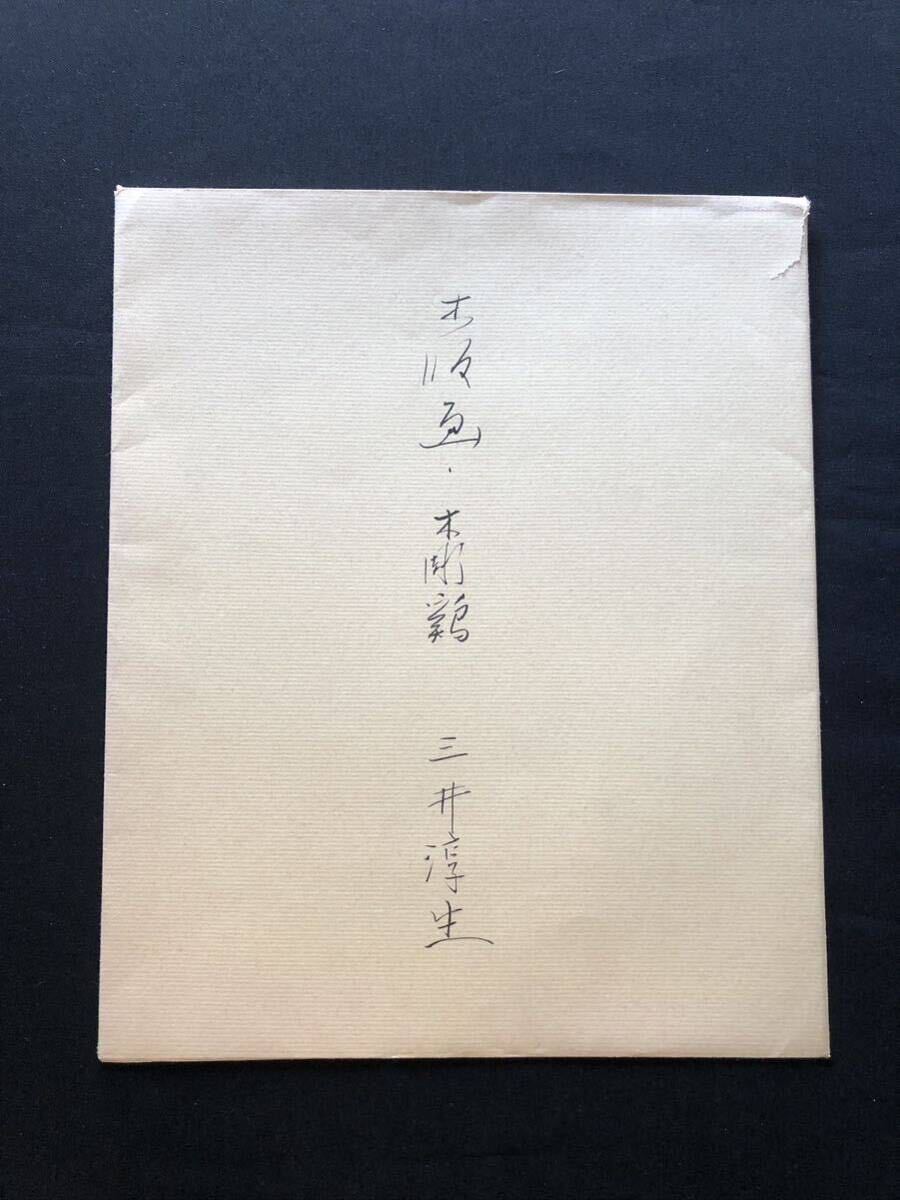 木版画・木彫鶏 三井淳生